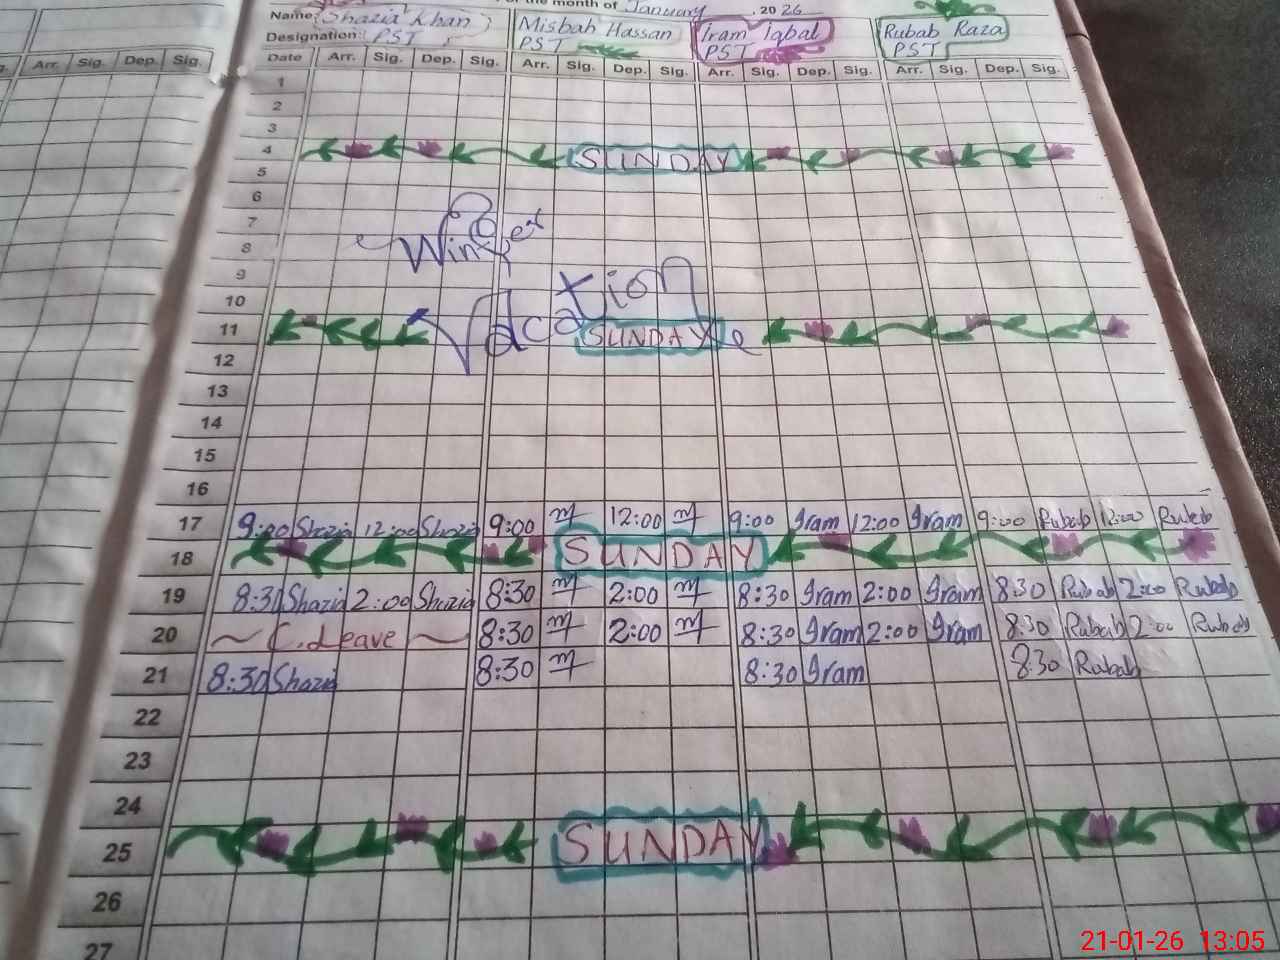 for the month of January 2026
Name: Shazia Khan Misbah Hassan Iram Iqbal Rubab Raza
Designation: PST PST PST PST
Arr. Sig. Dep. Sig. Date Arr. Sig. Dep. Sig. Arr. Sig. Dep. Sig. Arr. Sig. Dep. Sig. Arr. Sig. Dep. Sig.
1
2
3
4 SUNDAY
5
6
7
8 Winter
9
10 Vacation
11 SUNDAY
12
13
14
15
16
17 9:00 Shazia 12:00 Shazia 9:00 12:00 9:00 Iram 12:00 Iram 9:00 Rubab 12:00 Rubab
18 SUNDAY
19 8:30 Shazia 2:00 Shazia 8:30 2:00 8:30 Iram 2:00 Iram 8:30 Rubab 2:00 Rubab
20 C.Leave 8:30 2:00 8:30 Iram 2:00 Iram 8:30 Rubab 2:00 Rubab
21 8:30 Shazia 8:30 8:30 Iram 8:30 Rubab
22
23
24
25 SUNDAY
26
27
21-01-26 13:05